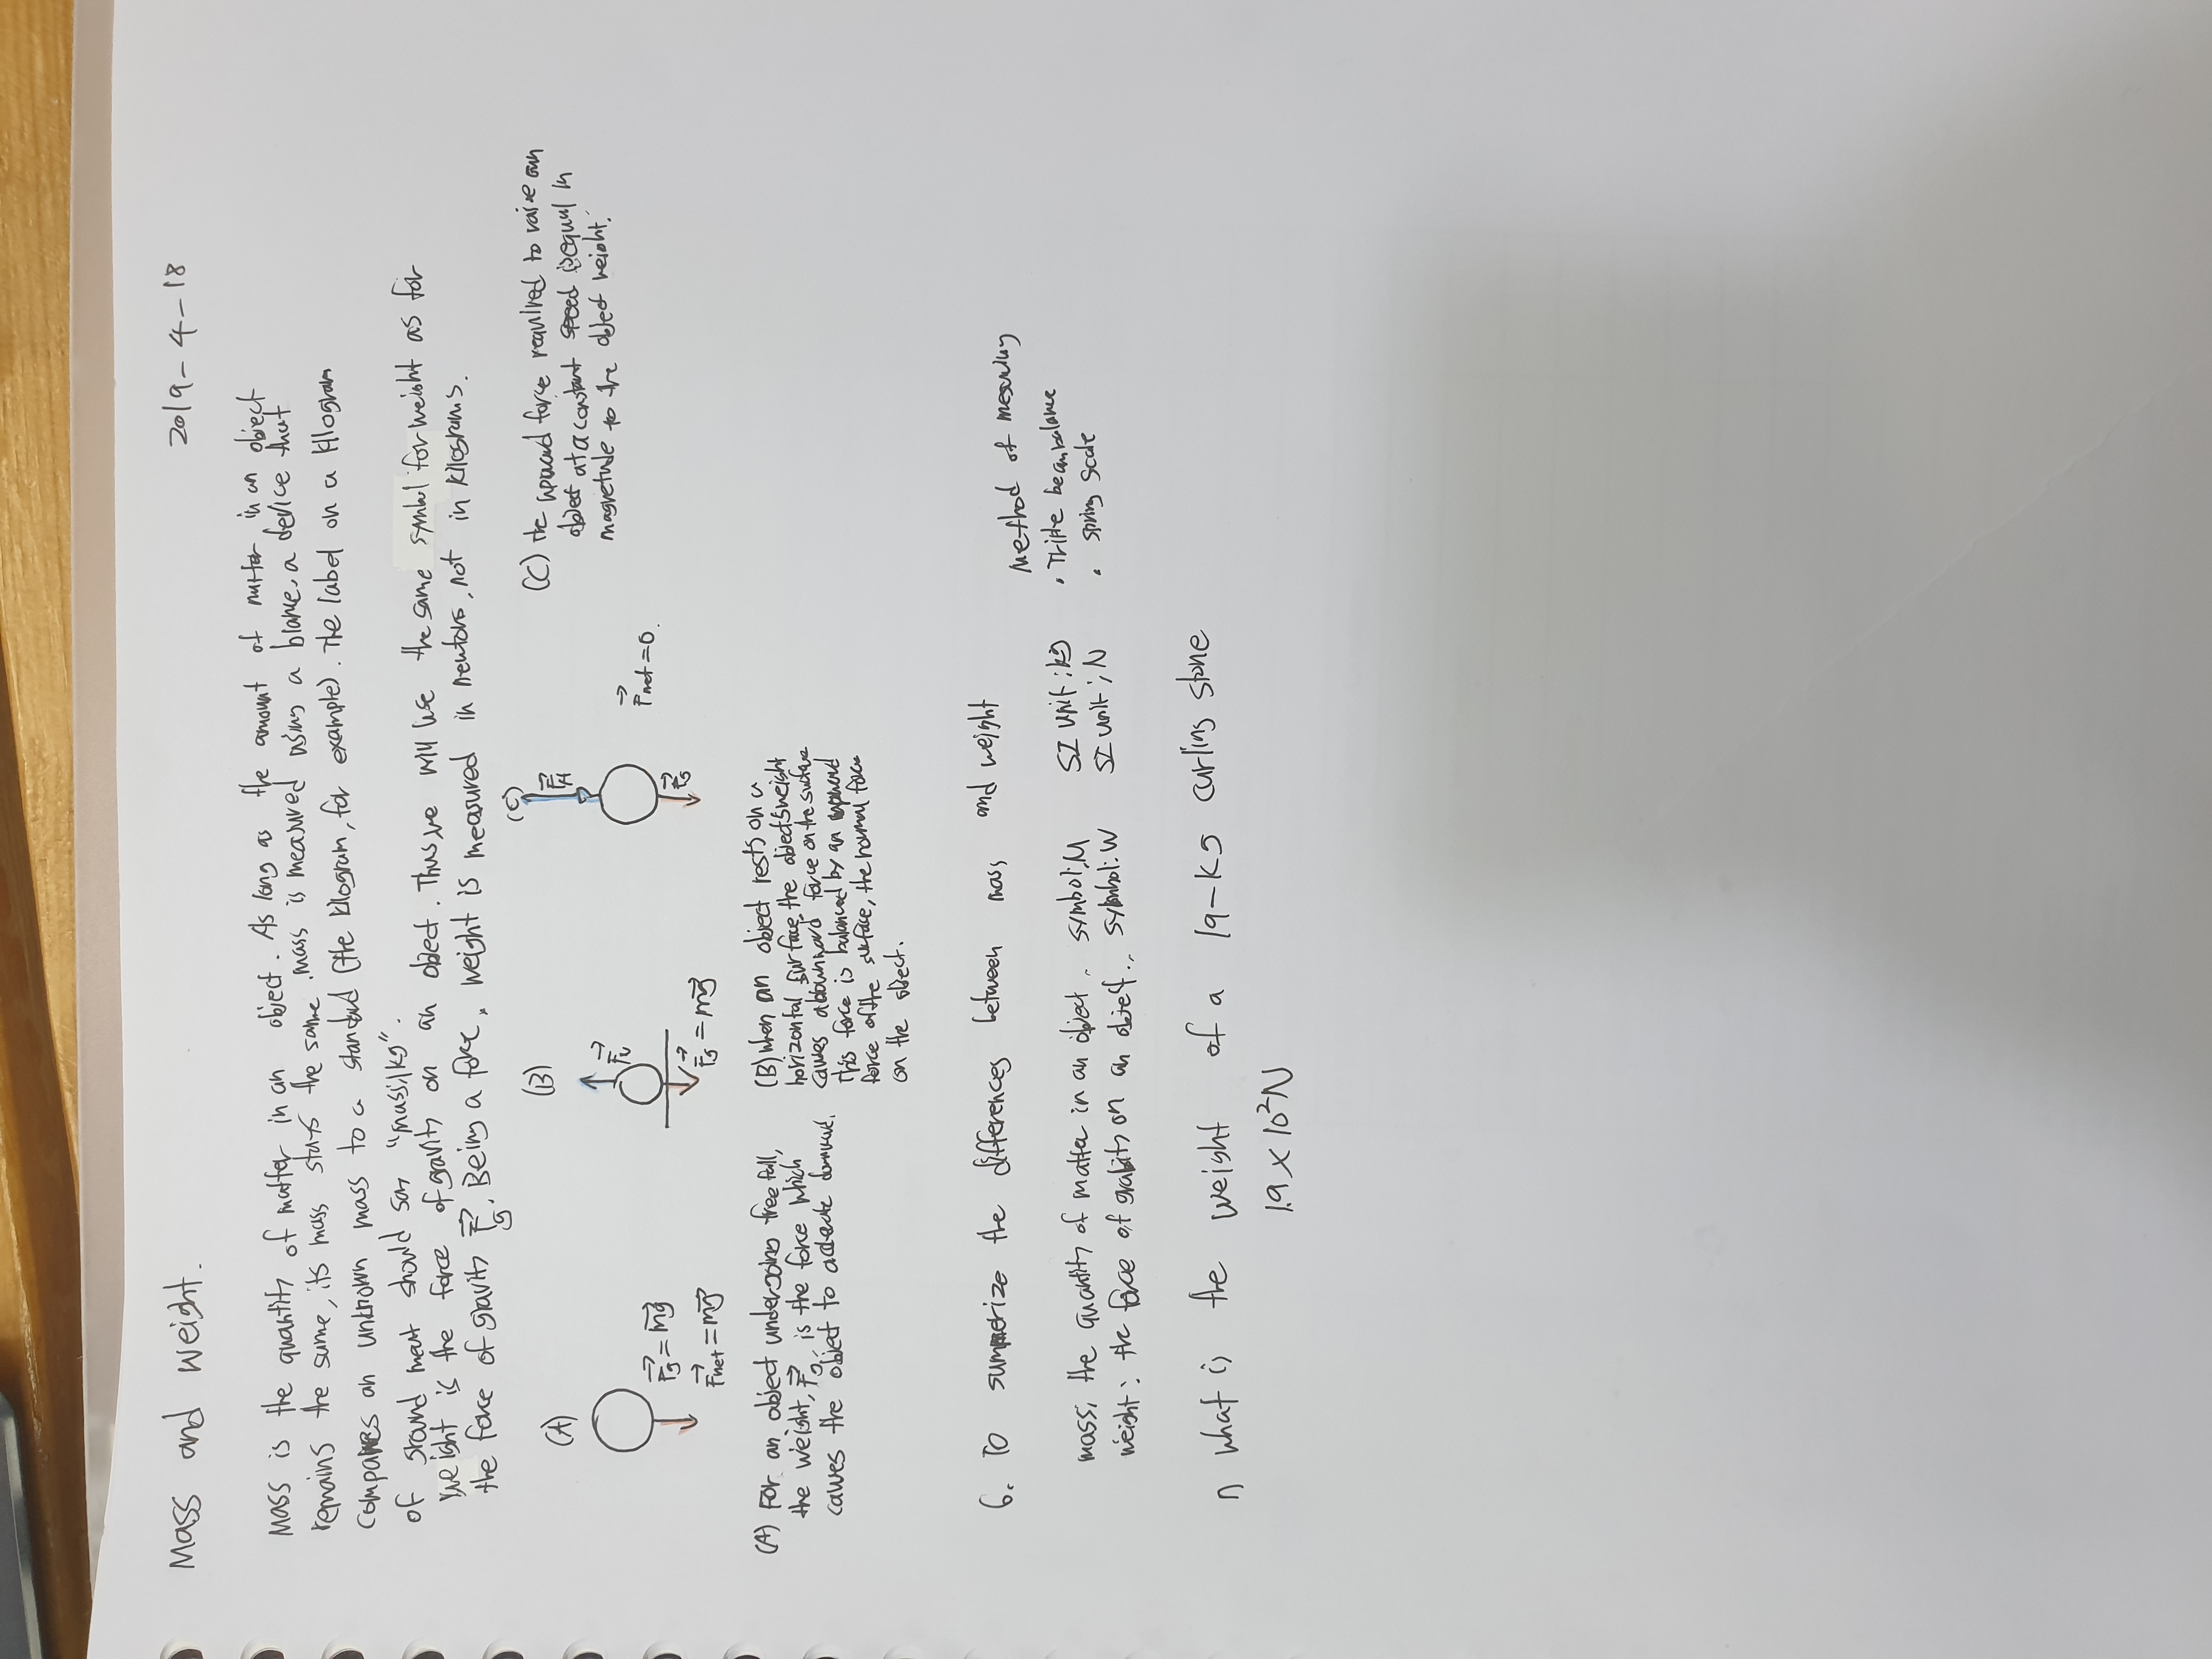 Mass and weight.
2019-4-18
Mass is the quantity of matter in an object. As long as the amount of matter in an object
remains the same, its mass stays the same. mass is measured using a blance, a device that
compares an unknown mass to a standard (the kilogram, for example). The label on a kilogram
of ground meat should say "mass 1kg".
Weight is the force of gravity on an object. Thus we will use the same symbol for weight as for
the force of gravity F⃗g. Being a force, weight is measured in newtons, not in kilograms.
(A)
F⃗g = mg⃗
F⃗net = mg⃗
(B)
F⃗N
F⃗g = mg⃗
(C)
F⃗A
F⃗g
F⃗net = 0.
(A) For an object undergoing free fall,
the weight, F⃗g, is the force which
causes the object to downward.
(B) When an object rests on a
horizontal surface, the object's weight
causes a downward force on the surface
this force is balanced by an upward
force of the surface, the normal force
on the object.
(C) the upward force required to raise an
object at a constant speed is equal in
magnetude to the object weight.
6. To summerize the differences between mass and weight
method of measuring
mass, the quantity of matter in an object. symbol:M SI unit:kg · Triple beam balance
weight: the force of gravity on an object. symbol:W SI unit:N · spring scale
what is the weight of a 19-kg curling stone
1.9 × 10²N